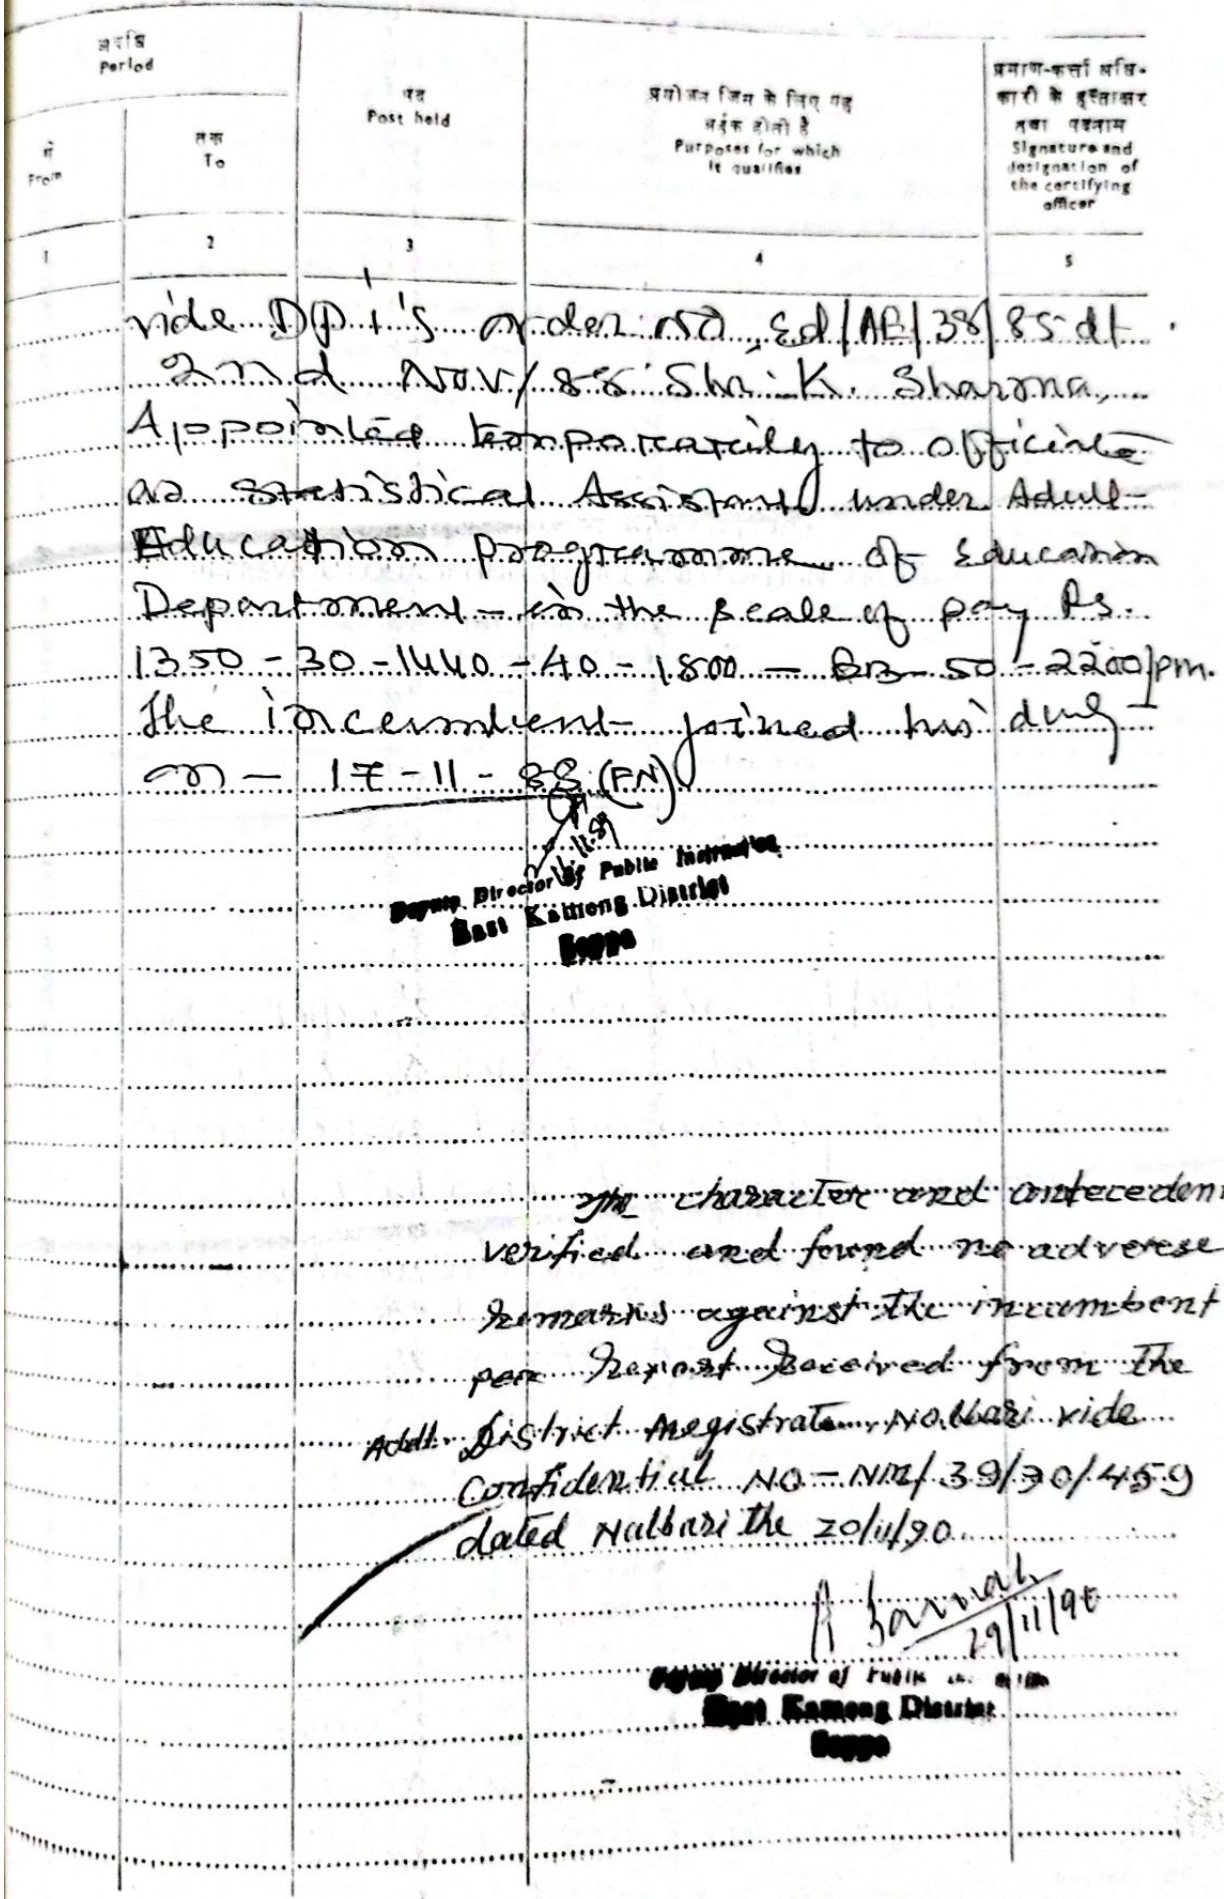 अवधि
Period
पद
Post held
प्रयोजन जिस के लिए यह
अर्हक होती है
Purposes for which
it qualifies
प्रमाण-कर्त्ता अधि-
कारी के हस्ताक्षर
तथा पदनाम
Signature and
designation of
the certifying
officer
से
From
तक
To
1 2 3 4 5
vide DPI's order no, Ed/AE/38/85 dt.
2nd Nov/88 Shri K. Sharma,
Appointed temporarily to officiate
as Statistical Assistant under Adult
Education programme of Education
Department in the scale of pay Rs.
1350 - 30 - 1440 - 40 - 1800 - EB - 50 - 2200/pm.
The incumbent joined his duty
on - 17-11-88 (FN)
Deputy Director of Public Instruction
East Kameng District
Seppa
The character and antecedent
verified and found no adverese
remarks against the incumbent
per report received from the
Addl. District Megistrate, Nalbari vide
Confidential NO - NM/39/90/459
dated Nalbari the 20/11/90
A Barmah
29/11/90
Deputy Director of Public
East Kameng District
Seppa